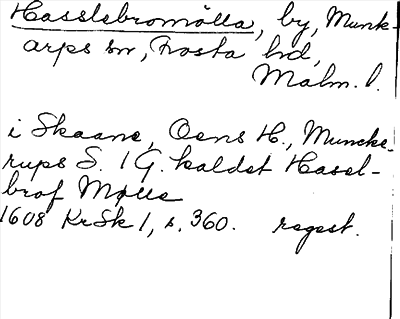 Hasslebromölla, by, Munk-
arps sn, Frosta hd,
Malm. l.
i Skaane, Oens H., Muncke-
rups S. 1 G. kaldet Hassl-
brof Mølle
1608 KrSk 1, s. 360. regest.